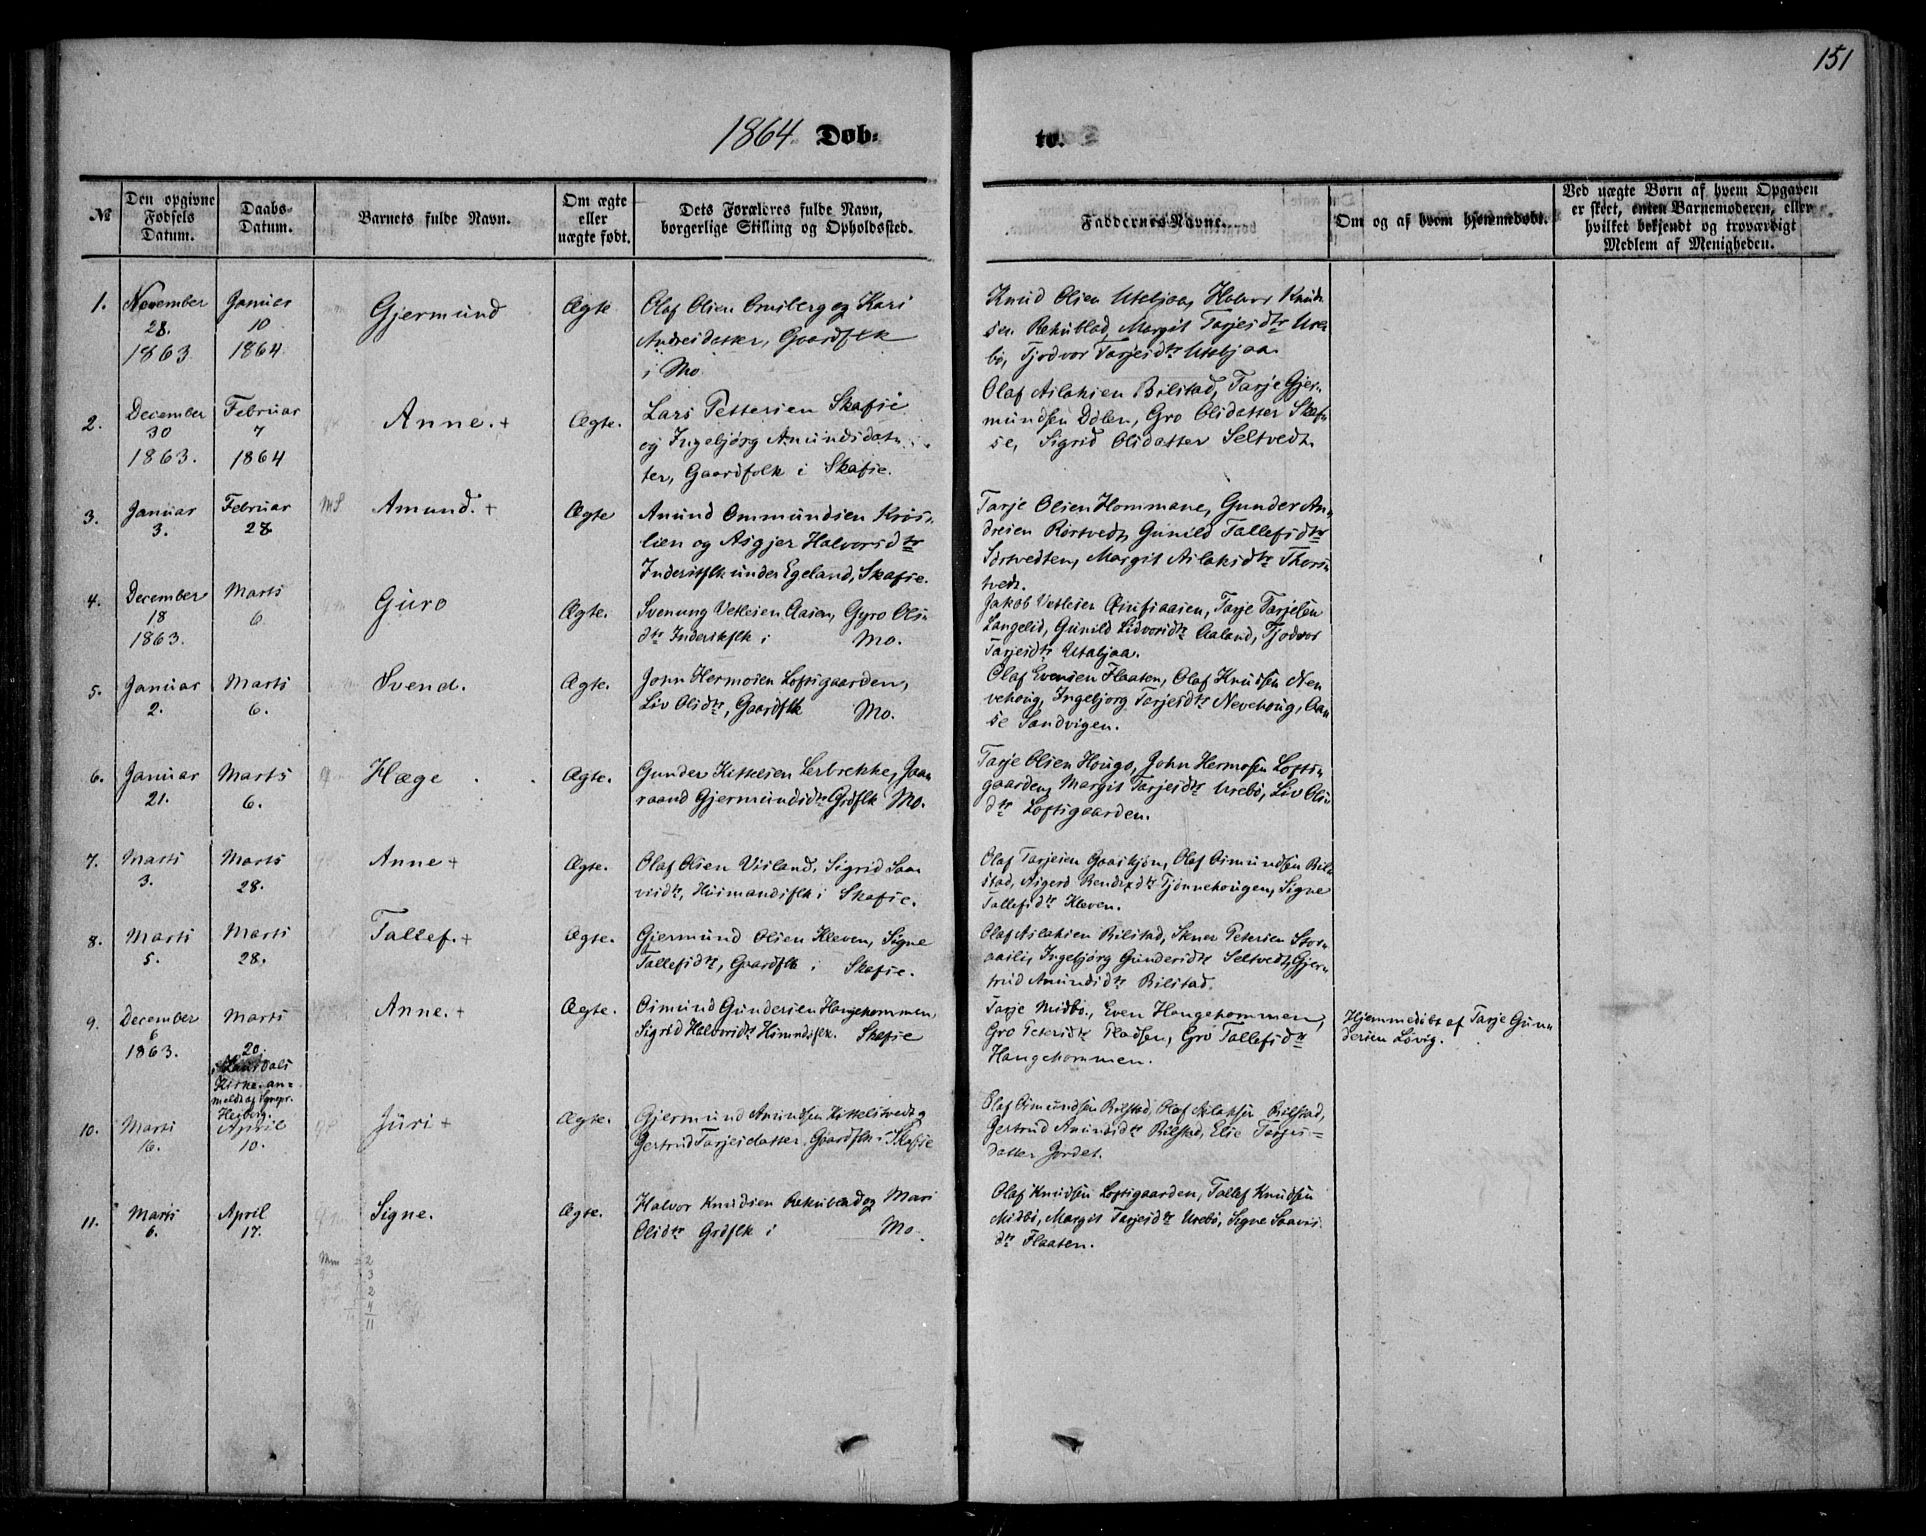 151
1864. Døb-
te.
№
Den opgivne
Fødsels
Datum.
Daabs-
Datum.
Barnets fulde Navn.
Om ægte
eller
uægte født.
Dets Forældres fulde Navn,
borgerlige Stilling og Opholdssted.
Faddernes Navne.
Om og af hvem hjemmedøbt.
Ved uægte Børn af hvem Opgaven
er skeet, enten Barnemoderen, eller
hvilket bekjendt og troværdigt
Medlem af Menigheden.
1.
November
28.
1863
Januar
10
1864.
Gjermund
Ægte
Olaf Olsen og Kari
Andresdatter, Gaardflk
i Mo.
Knud Olsen Utabjaa, Halvor Knud-
sen Rekublad, Margit Tarjesdtr Ure-
bø, Tjodvor Tarjesdtr Utabjaa
2.
December
30
1863.
Februar
7
1864
Anne. +
Ægte.
Lars Pettersen Skafse
og Ingebjørg Amundsdat-
ter, Gaardfolk i Skafse.
Olaf Aslaksen Bilstad, Tarje Gjer-
mundsen Dølen, Gro Olsdatter Skaf-
se, Sigrid Olsdatter Seltvedt.
3.
Januar
3.
Februar
28
MS
Amund. +
Ægte
Anund Ommundsen Kros-
lien og Asgjer Halvorsdtr
Inderstflk under Egeland, Skafse.
Tarje Olsen Hommane, Gunder An-
dresen Rørtvedt, Gunild Tallefsdtr
Sørtvedten, Margit Aslaksdtr Thors-
tvedt.
4.
December
18
1863.
Marts
6.
Guro
Ægte.
Svenung Vetlesen Aasen, Gyro Ols-
dtr Inderstflk i Mo.
Jakob Vetlesen Tarje Tarjesen
Langelid, Gunild Lidvorsdtr Aaland, Tjodvor
Tarjesdtr Utabjaa.
5.
Januar
2.
Marts
6.
Svend.
Ægte.
John Hermosen Loftsgaarden,
Liv Olsdtr, Gaardflk Mo.
Olaf Evensen Flaaten, Olaf Knudsen Ne-
vehoug, Ingebjorg Tarjesdtr Nevehoug, Aa-
se Sandvigen.
6.
Januar
21.
Marts
6.
Hæge
Ægte.
Gunder Kittelsen Lerbrekke, Jaa-
raand Gjermundsdtr Grdflk Mo.
Tarje Olsen Hougo, John Hermosen Lofts-
gaarden, Margit Tarjesdtr Urebø, Liv Ols-
dtr Loftsgaarden.
7.
Marts
3.
Marts
28.
Anne +
Ægte.
Olaf Olsen Visland, Sigrid Saa-
vesdtr, Huusmandsflk i Skafse.
Olaf Tarjesen Gaaskjøn, Olaf Osmundsen Bil-
stad, Asgerd Bendixdtr Tjønnehougen, Signe
Tallefsdtr Kleven.
8.
Marts
5.
Marts
28.
Tallef. +
Ægte.
Gjermund Olsen Kleven, Signe
Tallefsdtr, Gaardflk i Skafse.
Olaf Aslaksen Bilstad, Petersen Stor-
aasli, Ingebjørg Gundersdtr Seltvedt, Gjer-
trud Amundsdtr Bilstad.
9.
December
6
1863.
Marts
20.
i Laurdals
Kirke an-
meldt af Sgnpr.
Heiberg.
Anne. +
Ægte.
Osmund Gundersen Haugehommen,
Sigrid Halvorsdtr Huusmdsflk. Skafse
Tarje Midbø, Even Haugehommen,
Gro Petersdtr Pladsen, Gro Tallefsdtr
Haugehommen.
Hjemmedøbt af Tarje Gun-
dersen Løvig.
10.
Marts
16.
April
10.
Juri +
Ægte.
Gjermund Amundsen Kittelstvedt og
Gertrud Tarjesdatter, Gaardflk i Skafse
Olaf Osmundsen Bilstad, Olaf Aslaksen Bilstad,
Gertrud Amundsdtr Bilstad, Else Tarjes-
datter Jordet.
11.
Marts
6.
April
17.
Signe.
Ægte.
Halvor Knudsen Rekublad og Mari
Olsdtr Grdflk i Mo.
Olaf Knudsen Loftsgaarden, Tallef Knudsen
Midbø, Margit Tarjesdtr Urebø, Signe Saaves-
dtr Flaaten.
2
3
2
4
11